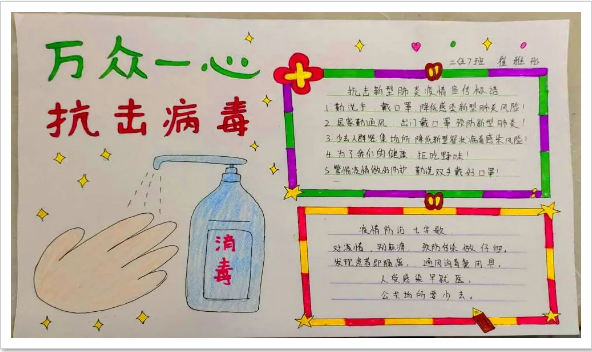 万众一心
抗击病毒
二(2)班
抗击新型肺炎疫情宣传标语
1. 勤洗手 戴口罩 降低感染新型肺炎风险!
2. 居家勤通风 出门戴口罩 预防新型肺炎!
3. 少去人群密集场所 降低新型冠状病毒感染风险!
4. 为了你们的健康 拒吃野味!
5. 警惕疫情做好防护 勤洗双手戴好口罩!
疫情防治七字歌
对疫情,别麻痹,预防传染做仔细。
发现患者即隔离,通风消毒餐用具。
人受感染早就医,
公共场所要少去。
消毒